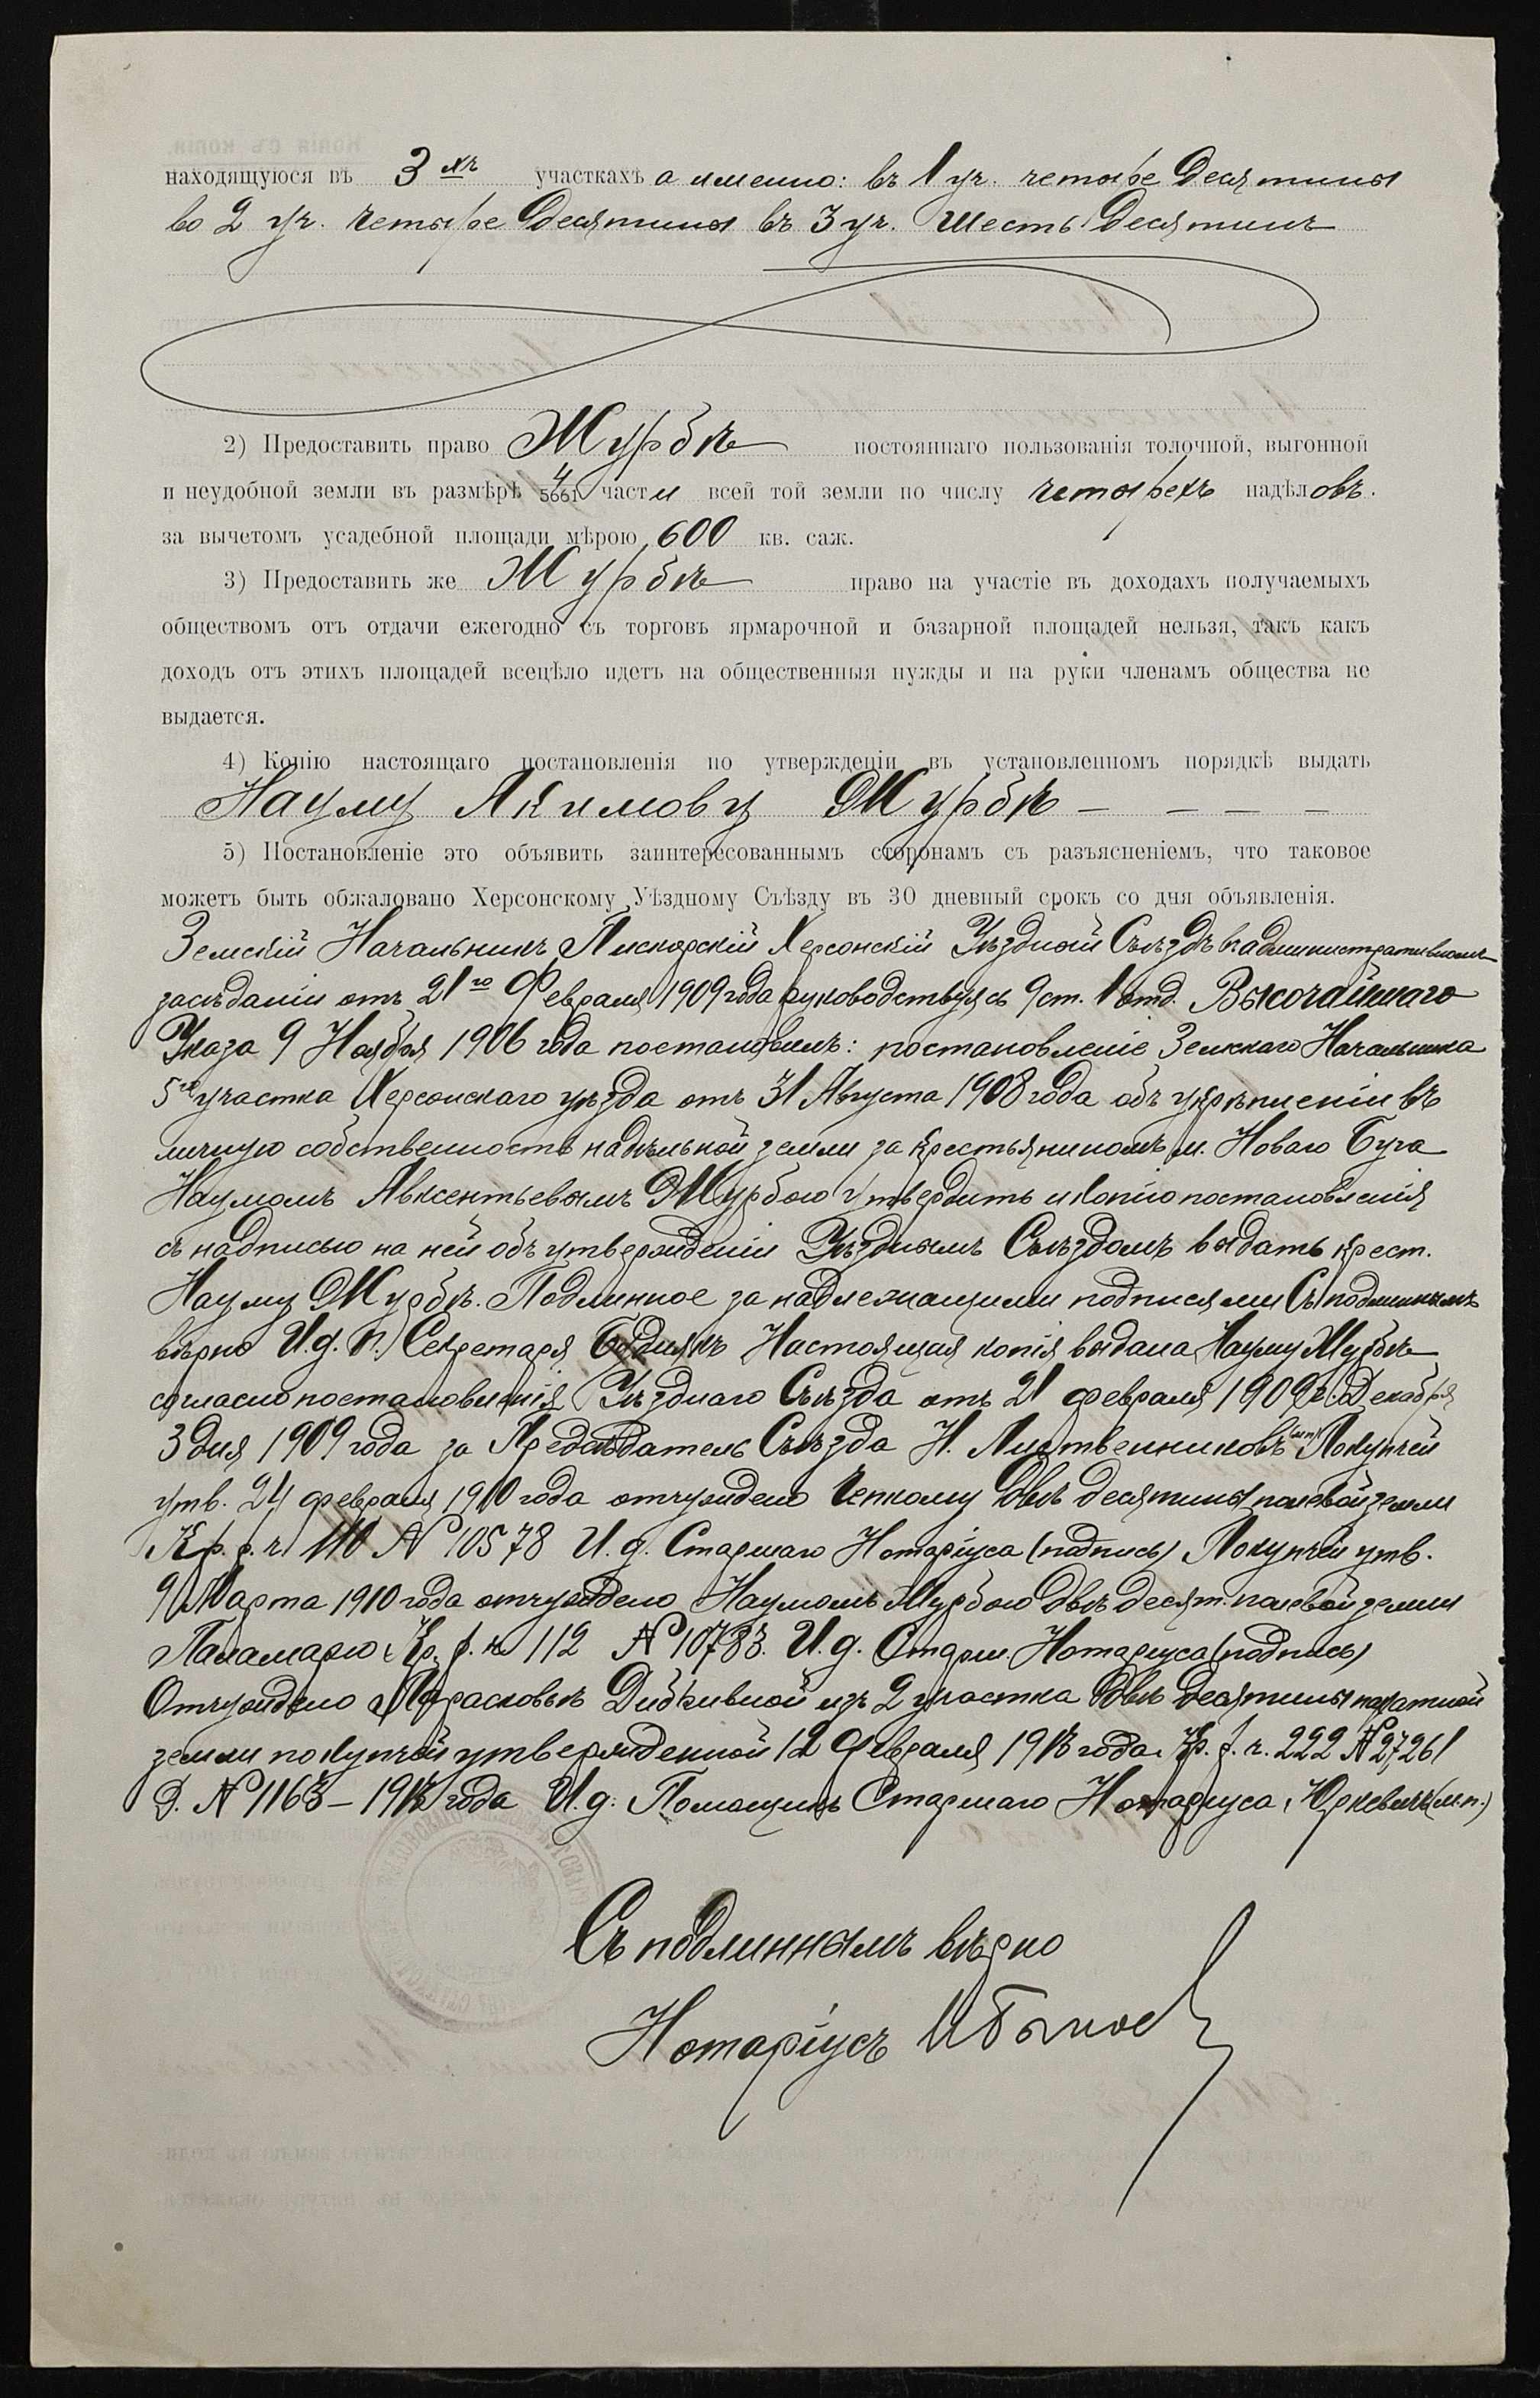 находящуюся въ 3хъ участкахъ а именно: въ 1 уч. четыре десятины
во 2 уч. четыре десятины въ 3 уч. шесть десятинъ
2) Предоставить право Журбѣ постояннаго пользованія толочной, выгонной
и неудобной земли въ размѣрѣ 4/5661 части всей той земли по числу четырехъ надѣловъ.
за вычетомъ усадебной площади мѣрою 600 кв. саж.
3) Предоставить же Журбѣ право на участіе въ доходахъ получаемыхъ
обществомъ отъ отдачи ежегодно съ торговъ ярмарочной и базарной площадей нельзя, такъ какъ
доходъ отъ этихъ площадей всецѣло идетъ на общественныя нужды и на руки членамъ общества не
выдается.
4) Копію настоящаго постановленія по утвержденіи въ установленномъ порядкѣ выдать
Науму Акимову Журбѣ
5) Постановленіе это объявить заинтересованнымъ сторонамъ съ разъясненіемъ, что таковое
можетъ быть обжаловано Херсонскому Уѣздному Съѣзду въ 30 дневный срокъ со дня объявленія.
Земскій Начальникъ Пискорскій Херсонскій Уѣздный Съѣздъ въ административномъ
засѣданіи отъ 21го Февраля 1909 года руководствуясь 9 ст. 1 отд. Высочайшаго
Указа 9 Ноября 1906 года постановилъ: постановленіе Земскаго Начальника
5го участка Херсонскаго уѣзда отъ 31 Августа 1908 года объ укрѣпленіи въ
личную собственность надѣльной земли за крестьяниномъ м. Новаго Буга
Наумомъ Авксентьевымъ Журбою утвердить и копію постановленія
съ надписью на ней объ утвержденіи Уѣзднымъ Съѣздомъ выдать крест.
Науму Журбѣ. Подлинное за надлежащими подписями Съ подлиннымъ
вѣрно И.д. Секретаря Настоящая копія выдана Науму Журбѣ
согласно постановленія Уѣзднаго Съѣзда отъ 21 февраля 1909 г. Декабря
3 дня 1909 года за Предсѣдатель Съѣзда Н. Лиственниковъ (мп) Покупчей
утв. 24 февраля 1910 года отчуждено Чепкому двѣ десятины полевой земли
Кр. р. ч. 110 № 10578 И.д. Старшаго Нотаріуса (подпись) Покупчей утв.
9 Марта 1910 года отчуждено Наумомъ Журбою двѣ десят. полевой земли
Паламарю Кр. р. ч. 112 № 10783. И.д. Старш. Нотаріуса (подпись)
Отчуждено Парасковьѣ Дибкивной изъ 2 участка двѣ десятины пахатной
земли покупчей утвержденной 12 февраля 1913 года. Кр. р. ч. 222 № 27261
Д. № 1163 – 1913 года И.д. Помощникъ Старшаго Нотаріуса Юркевичъ (м.п.)
Съ подлиннымъ вѣрно
Нотаріусъ